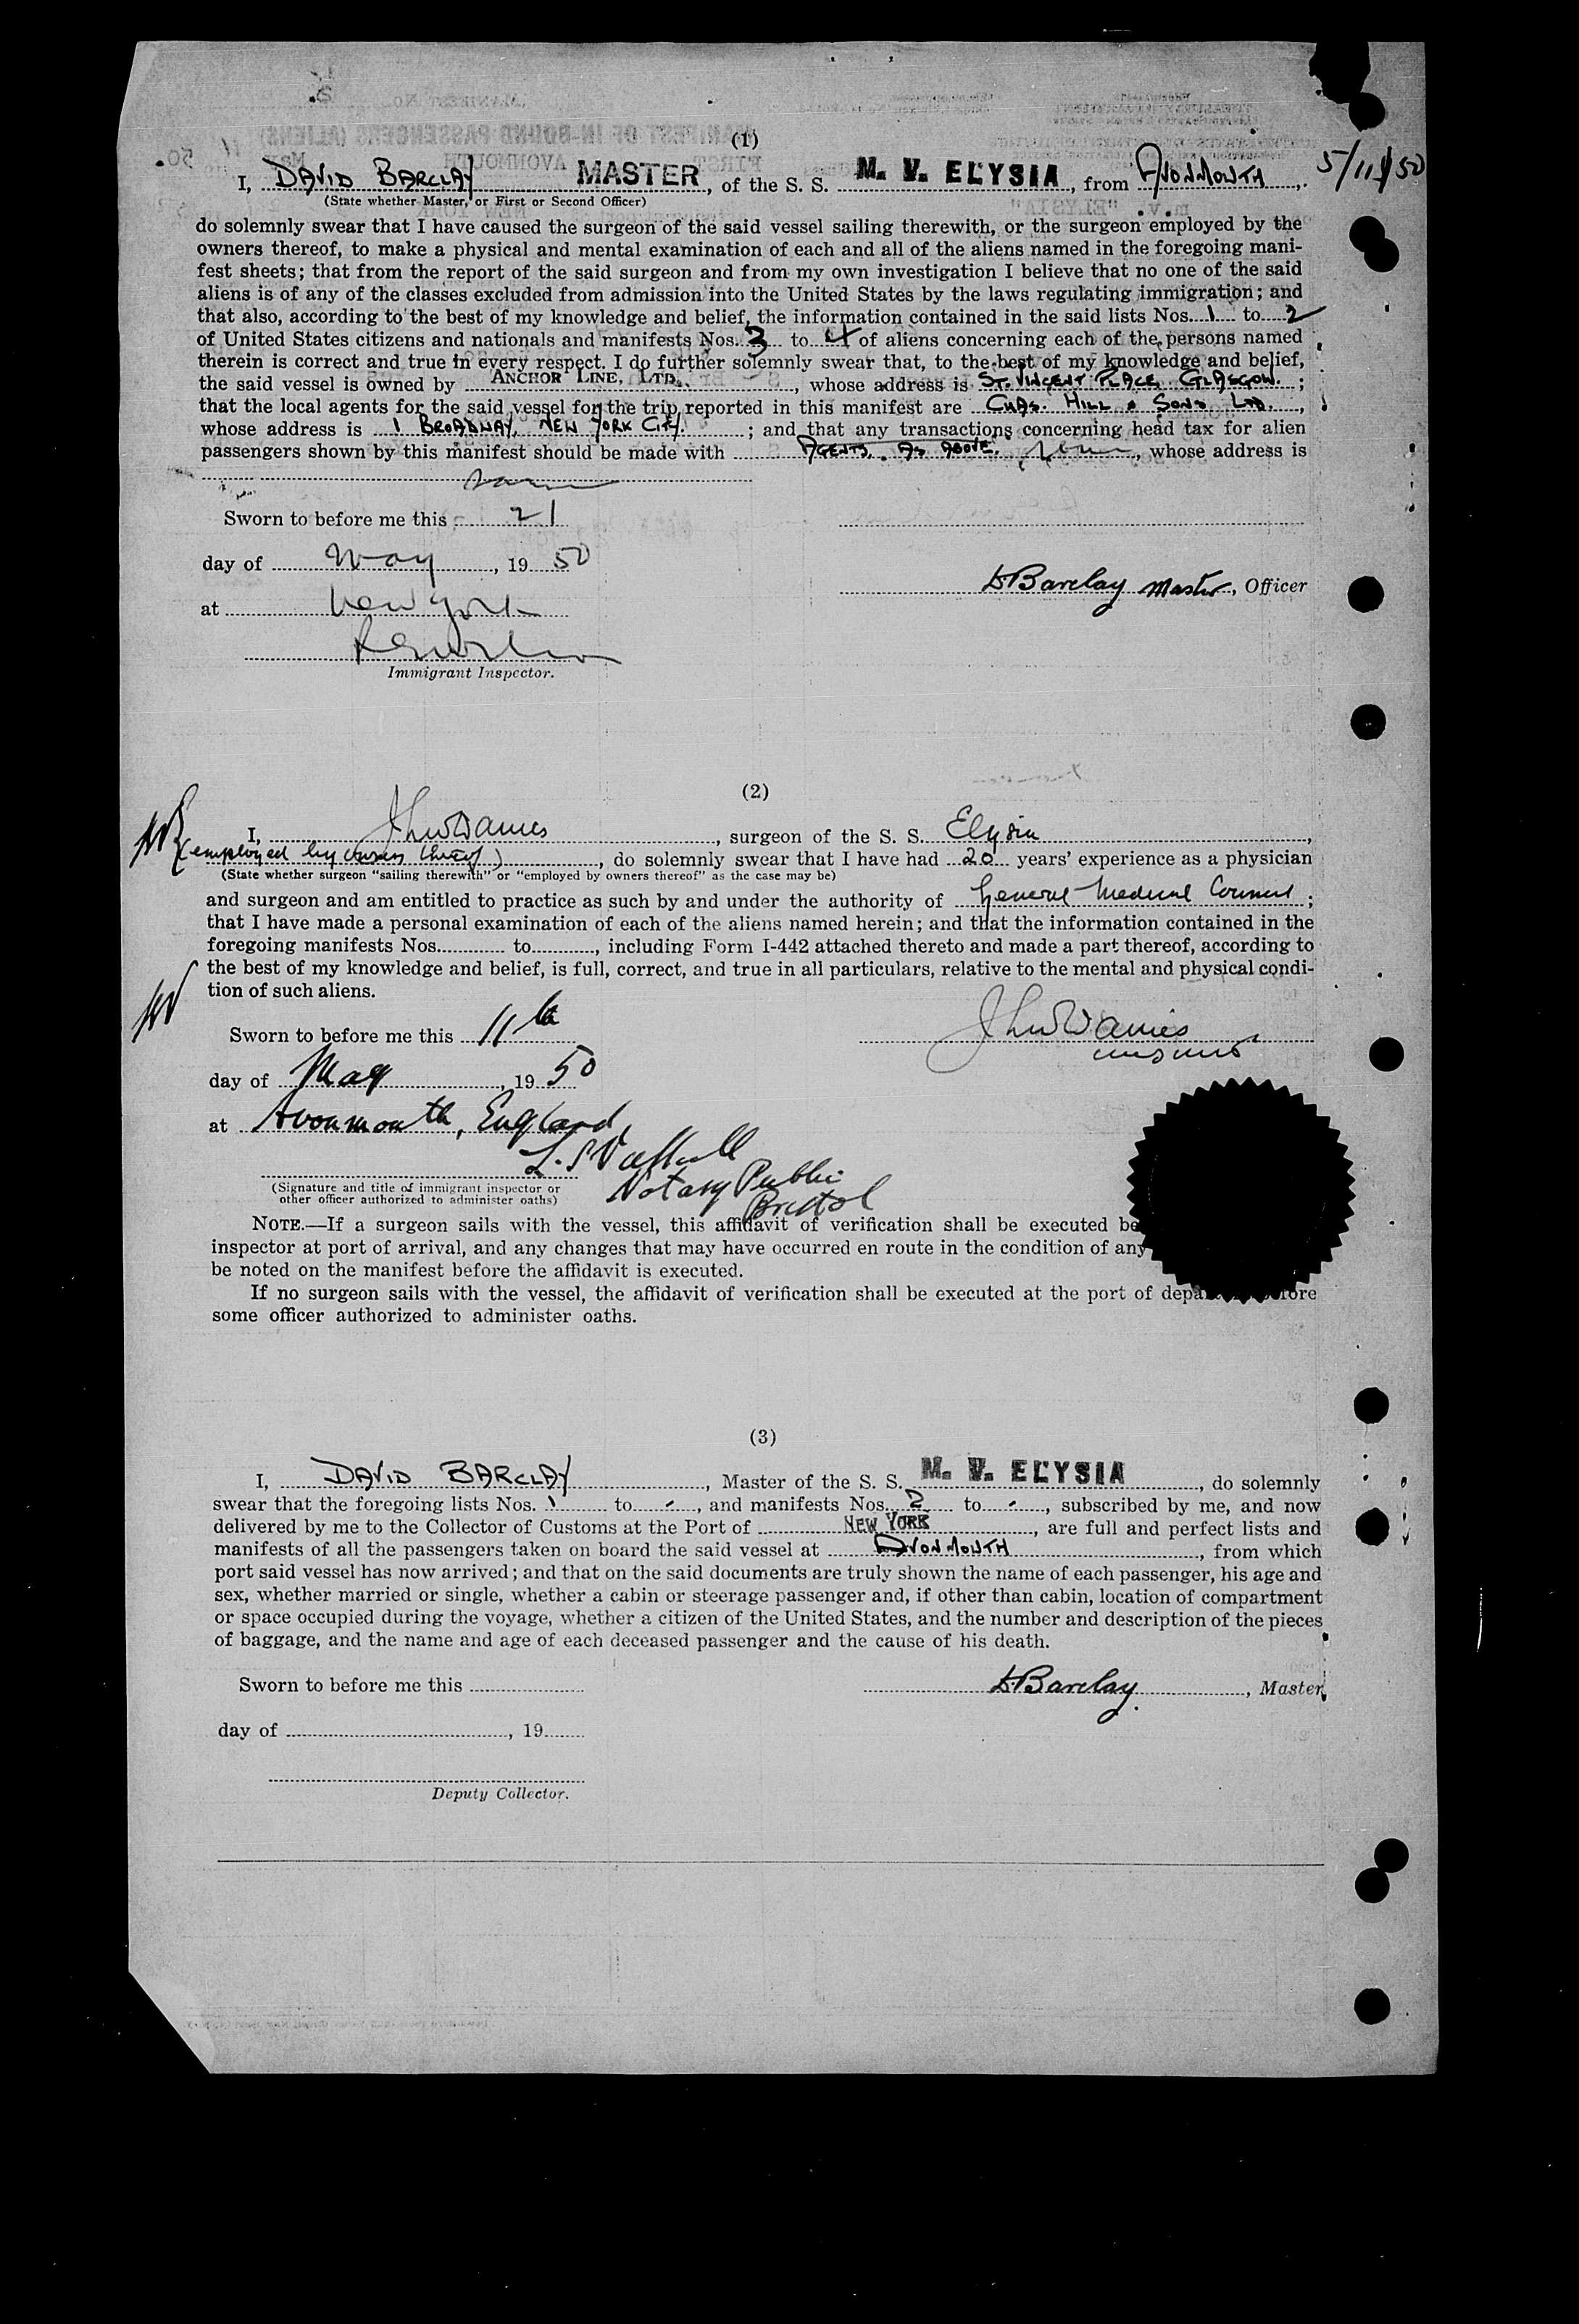 (1)
I, DAVID BARCLAY MASTER, of the S. S. M. V. ELYSIA, from AVONMOUTH, 5/11/50
(State whether Master, or First or Second Officer)
do solemnly swear that I have caused the surgeon of the said vessel sailing therewith, or the surgeon employed by the
owners thereof, to make a physical and mental examination of each and all of the aliens named in the foregoing mani-
fest sheets; that from the report of the said surgeon and from my own investigation I believe that no one of the said
aliens is of any of the classes excluded from admission into the United States by the laws regulating immigration; and
that also, according to the best of my knowledge and belief, the information contained in the said lists Nos. 1 to 2
of United States citizens and nationals and manifests Nos. 3 to 4 of aliens concerning each of the persons named
therein is correct and true in every respect. I do further solemnly swear that, to the best of my knowledge and belief,
the said vessel is owned by ANCHOR LINE, LTD., whose address is ST. VINCENT PLACE GLASGOW. ;
that the local agents for the said vessel for the trip reported in this manifest are CHAS. HILL & SONS LTD. ,
whose address is 1 BROADWAY, NEW YORK CITY. ; and that any transactions concerning head tax for alien
passengers shown by this manifest should be made with AGENTS. AS ABOVE. , whose address is
Sworn to before me this 21
day of May, 19 50
at New York
D Barclay Master, Officer
Immigrant Inspector.
(2)
I, , surgeon of the S. S. Elysia ,
(employed by owners thereof) , do solemnly swear that I have had 20 years' experience as a physician
(State whether surgeon "sailing therewith" or "employed by owners thereof" as the case may be)
and surgeon and am entitled to practice as such by and under the authority of General Medical Council ;
that I have made a personal examination of each of the aliens named herein; and that the information contained in the
foregoing manifests Nos. to , including Form I-442 attached thereto and made a part thereof, according to
the best of my knowledge and belief, is full, correct, and true in all particulars, relative to the mental and physical condi-
tion of such aliens.
Sworn to before me this 11th
day of May, 19 50
at Avonmouth, England
Notary Public
Bristol
(Signature and title of immigrant inspector or
other officer authorized to administer oaths)
NOTE.—If a surgeon sails with the vessel, this affidavit of verification shall be executed be
inspector at port of arrival, and any changes that may have occurred en route in the condition of any
be noted on the manifest before the affidavit is executed.
If no surgeon sails with the vessel, the affidavit of verification shall be executed at the port of departure before
some officer authorized to administer oaths.
(3)
I, DAVID BARCLAY , Master of the S. S. M. V. ELYSIA , do solemnly
swear that the foregoing lists Nos. 1 to - , and manifests Nos. 2 to - , subscribed by me, and now
delivered by me to the Collector of Customs at the Port of NEW YORK , are full and perfect lists and
manifests of all the passengers taken on board the said vessel at AVONMOUTH , from which
port said vessel has now arrived; and that on the said documents are truly shown the name of each passenger, his age and
sex, whether married or single, whether a cabin or steerage passenger and, if other than cabin, location of compartment
or space occupied during the voyage, whether a citizen of the United States, and the number and description of the pieces
of baggage, and the name and age of each deceased passenger and the cause of his death.
Sworn to before me this
D Barclay. , Master
day of , 19
Deputy Collector.